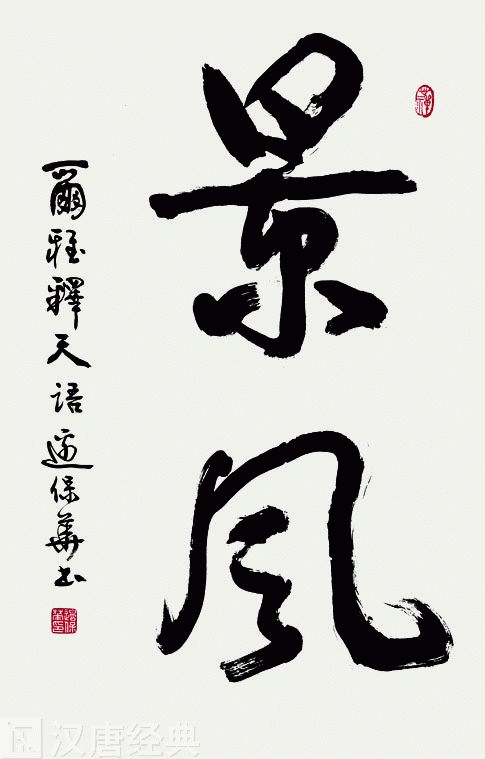 景風
爾雅釋天語邊保華书
汉唐经典